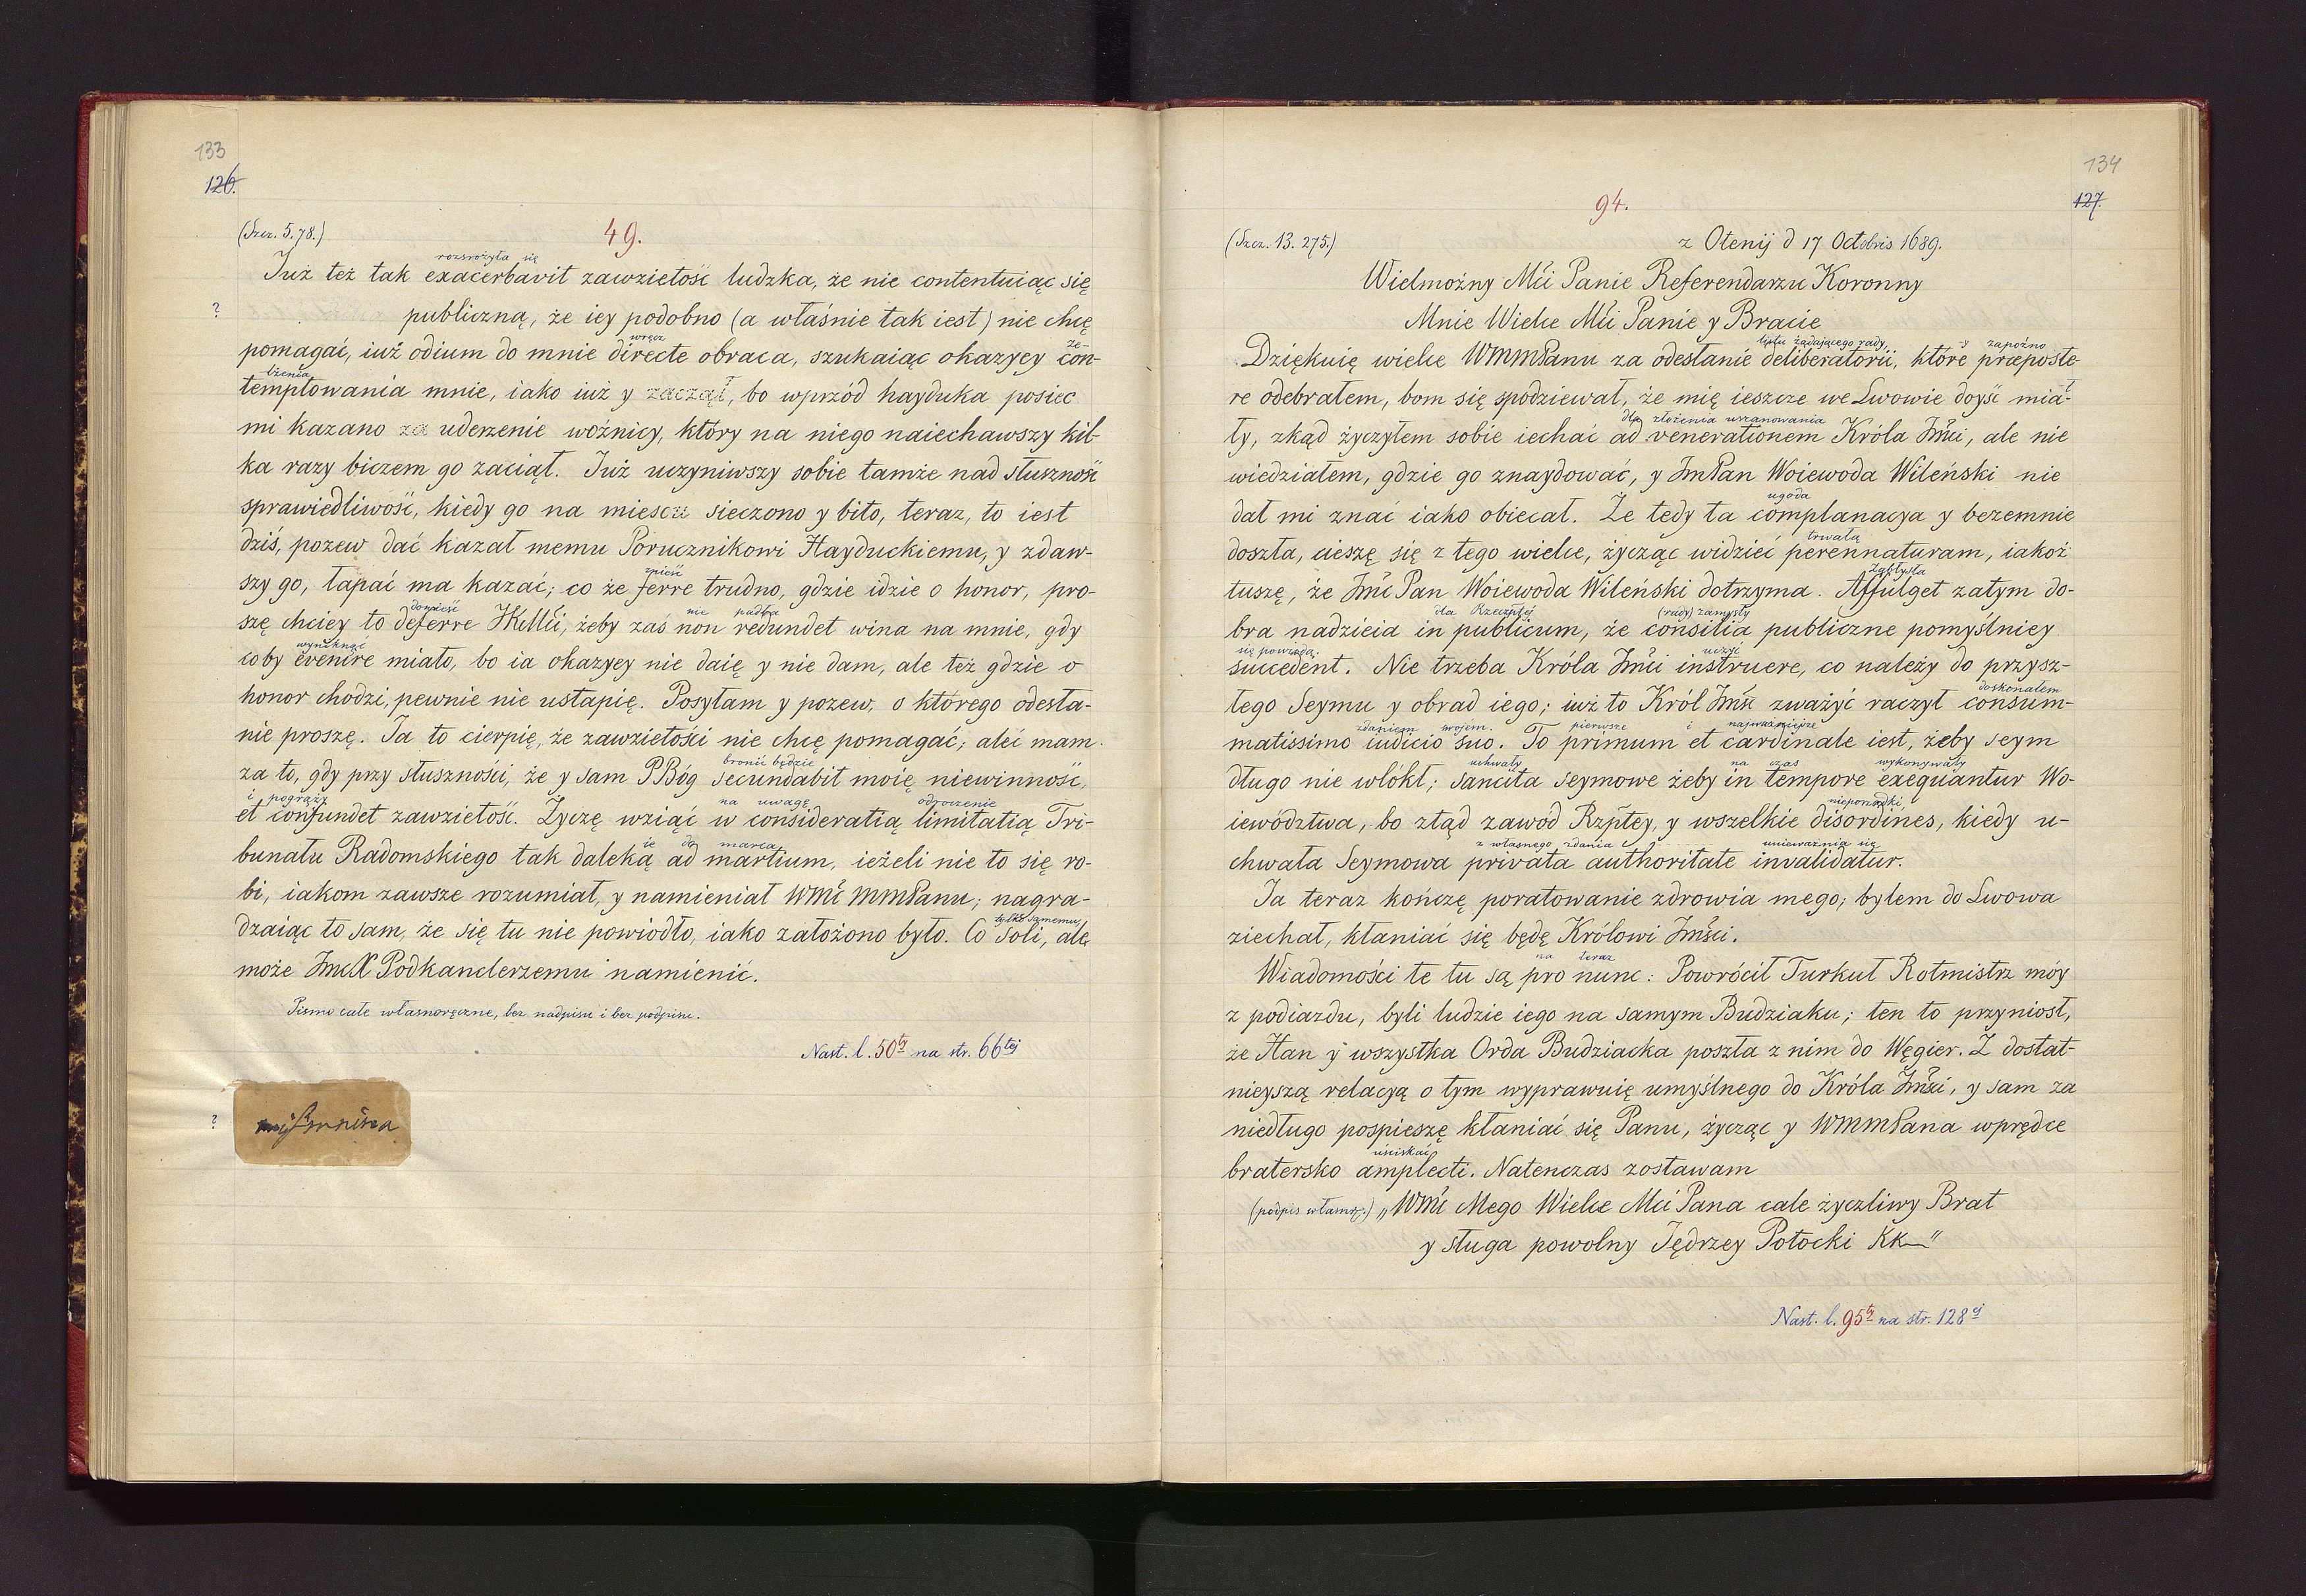 133
126.
(Szcz. 5. 78.)
49.
rozsrożyła się
Już też tak exacerbavit zawzietość ludzka, że nie contentuiąc się
? publiczną, że iey podobno (a właśnie tak iest) nie chcę
wręcz ze-
pomagać, iuż odium do mnie directe obraca, szukaiąc okazyey con-
lżenia
temptowania mnie, iako iuż y zaczął, bo wprzód hayduka posiec
mi kazano za uderzenie woźnicy, który na niego naiechawszy kil-
ka razy biczem go zaciął. Już uczyniwszy sobie tamże nad słuszność
sprawiedliwość, kiedy go na miescu sieczono y bito, teraz, to iest
dziś, pozew dać kazał memu Porucznikowi Hayduckiemu, y zdaw-
znieść
szy go, łapać ma kazać; co że ferre trudno, gdzie idzie o honor, pro-
donieść nie padła
szę chciey to deferre JKMMci, żeby zaś non redundet wina na mnie, gdy
wyniknąć
coby evenire miało, bo ia okazyey nie daię y nie dam, ale też gdzie o
honor chodzi, pewnie nie ustąpię. Posyłam y pozew, o którego odesła-
nie proszę. Ja to cierpię, że zawzietości nie chcę pomagać; aleć mam
bronić będzie
za to, gdy przy słuszności, że y sam PBóg secundabit moię niewinność,
i pogrąży na uwagę odroczenie
et confundet zawzietość. Życzę wziąć w consideratią limitatią Tri-
ie do marca
bunału Radomskiego tak daleką ad martium, ieżeli nie to się ro-
bi, iakom zawsze rozumiał, y namieniał WMć MMPanu; nagra-
tylko samemu
dzaiąc to sam, że się tu nie powiodło, iako założono było. Co soli, ale
może JmcX Podkanclerzemu namienić.
Pismo całe własnoręczne, bez nadpisu i bez podpisu.
Nast. l. 50ty na str. 66tej
?
134
127.
94.
(Szcz. 13. 275.)
z Otenij d 17 Octobris 1689.
Wielmożny Mći Panie Referendarzu Koronny
Mnie Wielce Mći Panie y Bracie
listu żądającego rady, zapóźno
Dziękuię wielce WMMPanu za odesłanie deliberatorii, które præposte-
re odebrałem, bom się spodziewał, że mię ieszcze we Lwowie doyść mia-
dla złożenia uszanowania
ły, zkąd życzyłem sobie iechać ad venerationem Króla Jmści, ale nie
wiedziałem, gdzie go znaydować, y JmPan Woiewoda Wileński nie
ugoda
dał mi znać iako obiecał. Że tedy ta complanacya y bezemnie
trwałą
doszła, cieszę się z tego wielce, życząc widzieć perennaturam, iakoż
Zabłysła
tuszę, że Jmć Pan Woiewoda Wileński dotrzyma. Affulget zatym do-
dla Rzeczpltej (rady) zamysły
bra nadzieia in publicum, że consilia publiczne pomyślniey
się powiodą. uczyć
succedent. Nie trzeba Króla Jmści instruere, co należy do przysz-
doskonałem
łego Seymu y obrad iego; iuż to Król Jmść zważyć raczył consum-
zdaniem swojem. pierwsze i najważniejsze
matissimo iudicio suo. To primum et cardinale iest, żeby seym
uchwały na czas wykonywały
długo nie wlókł; sancita seymowe żeby in tempore exequantur Wo-
nieporządki,
iewództwa, bo ztąd zawód Rzptey, y wszelkie disordines, kiedy u-
z własnego zdania unieważnia się
chwała Seymowa privata authoritate invalidatur.
Ja teraz kończę poratowanie zdrowia mego; bylem do Lwowa
ziechał, kłaniać się będę Królowi Jmści.
na teraz
Wiadomości te tu są pro nunc: Powrócił Turkuł Rotmistrz móy
z podiazdu, byli ludzie iego na samym Budziaku; ten to przyniósł,
że Han y wszystka Orda Budziacka poszła z nim do Węgier. Z dostat-
nieyszą relacyą o tym wyprawuię umyślnego do Króla Jmści, y sam za
niedługo pospieszę kłaniać się Panu, życząc y WMMPana wprędce
uściskać
bratersko amplecti. Natenczas zostawam
(podpis własnor.) „WMć Mego Wielce Mći Pana cale życzliwy Brat
y sługa powolny Jędrzey Potocki KK"
Nast. l. 95ty na str. 128ej